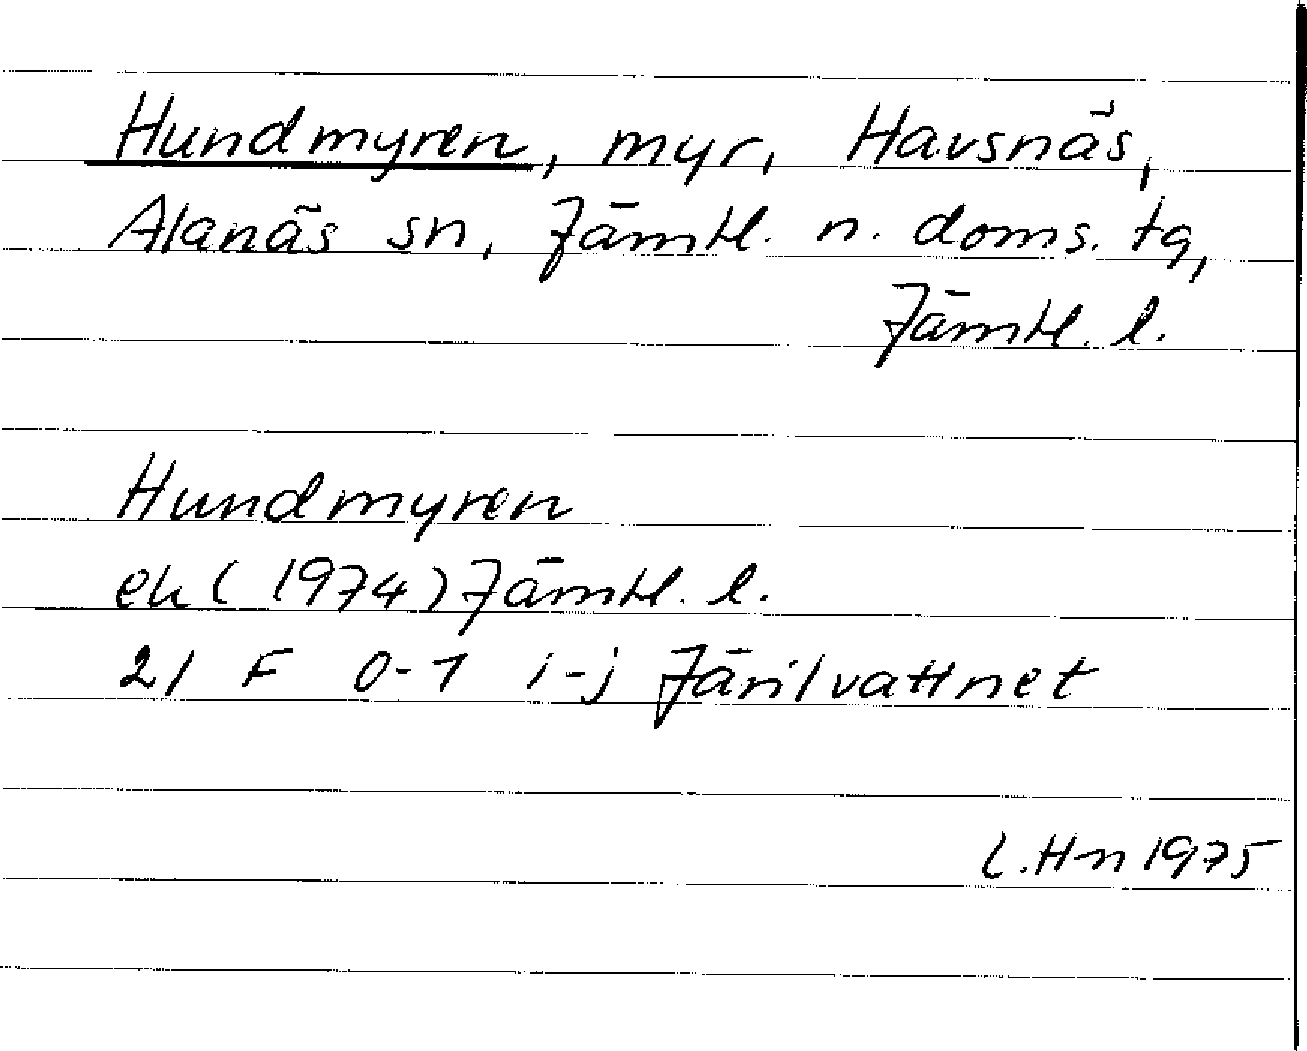 Hundmyren, myr, Havsnäs,
Alanäs sn, Jämtl. n. doms. tg,
Jämtl. l.
Hundmyren
ek (1974) Jämtl. l.
21 F 0-1 i-j Järilvattnet
L.Hn 1975